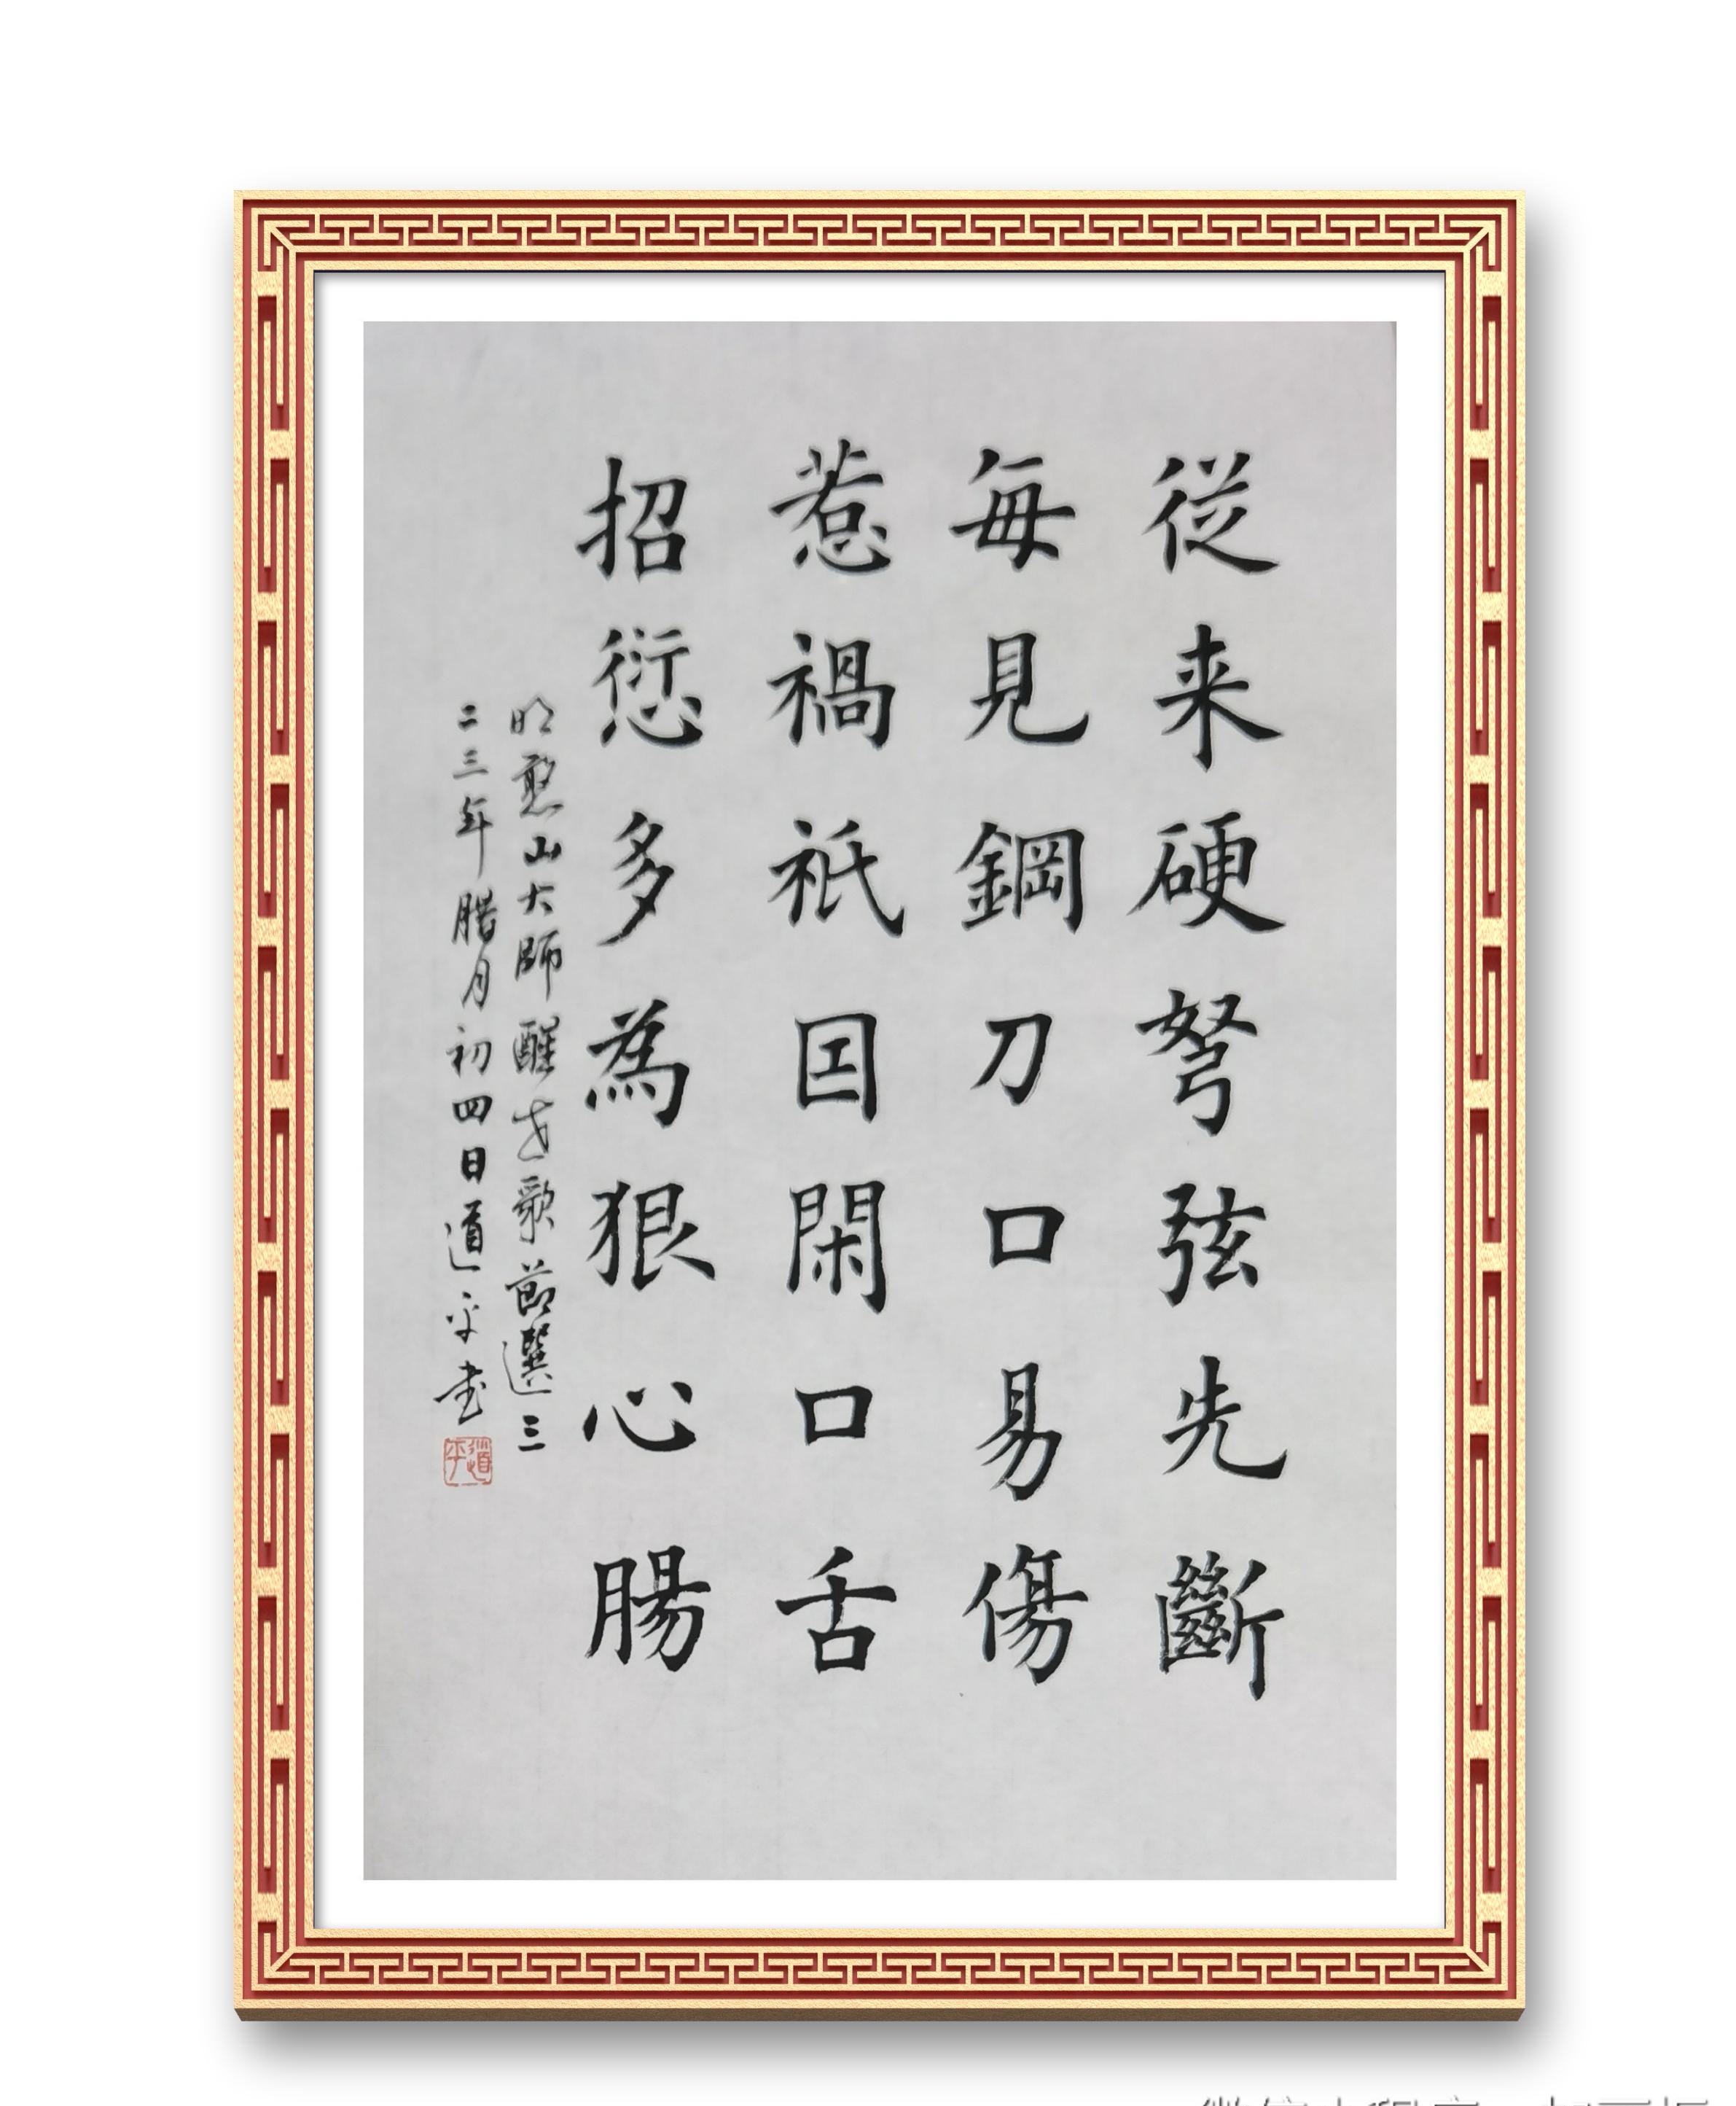 従来硬弩弦先斷
每見鋼刀口易傷
惹禍祇因閑口舌
招愆多為狠心腸
明憨山大師醒世歌節選三
二三年腊月初四日道平书
道平